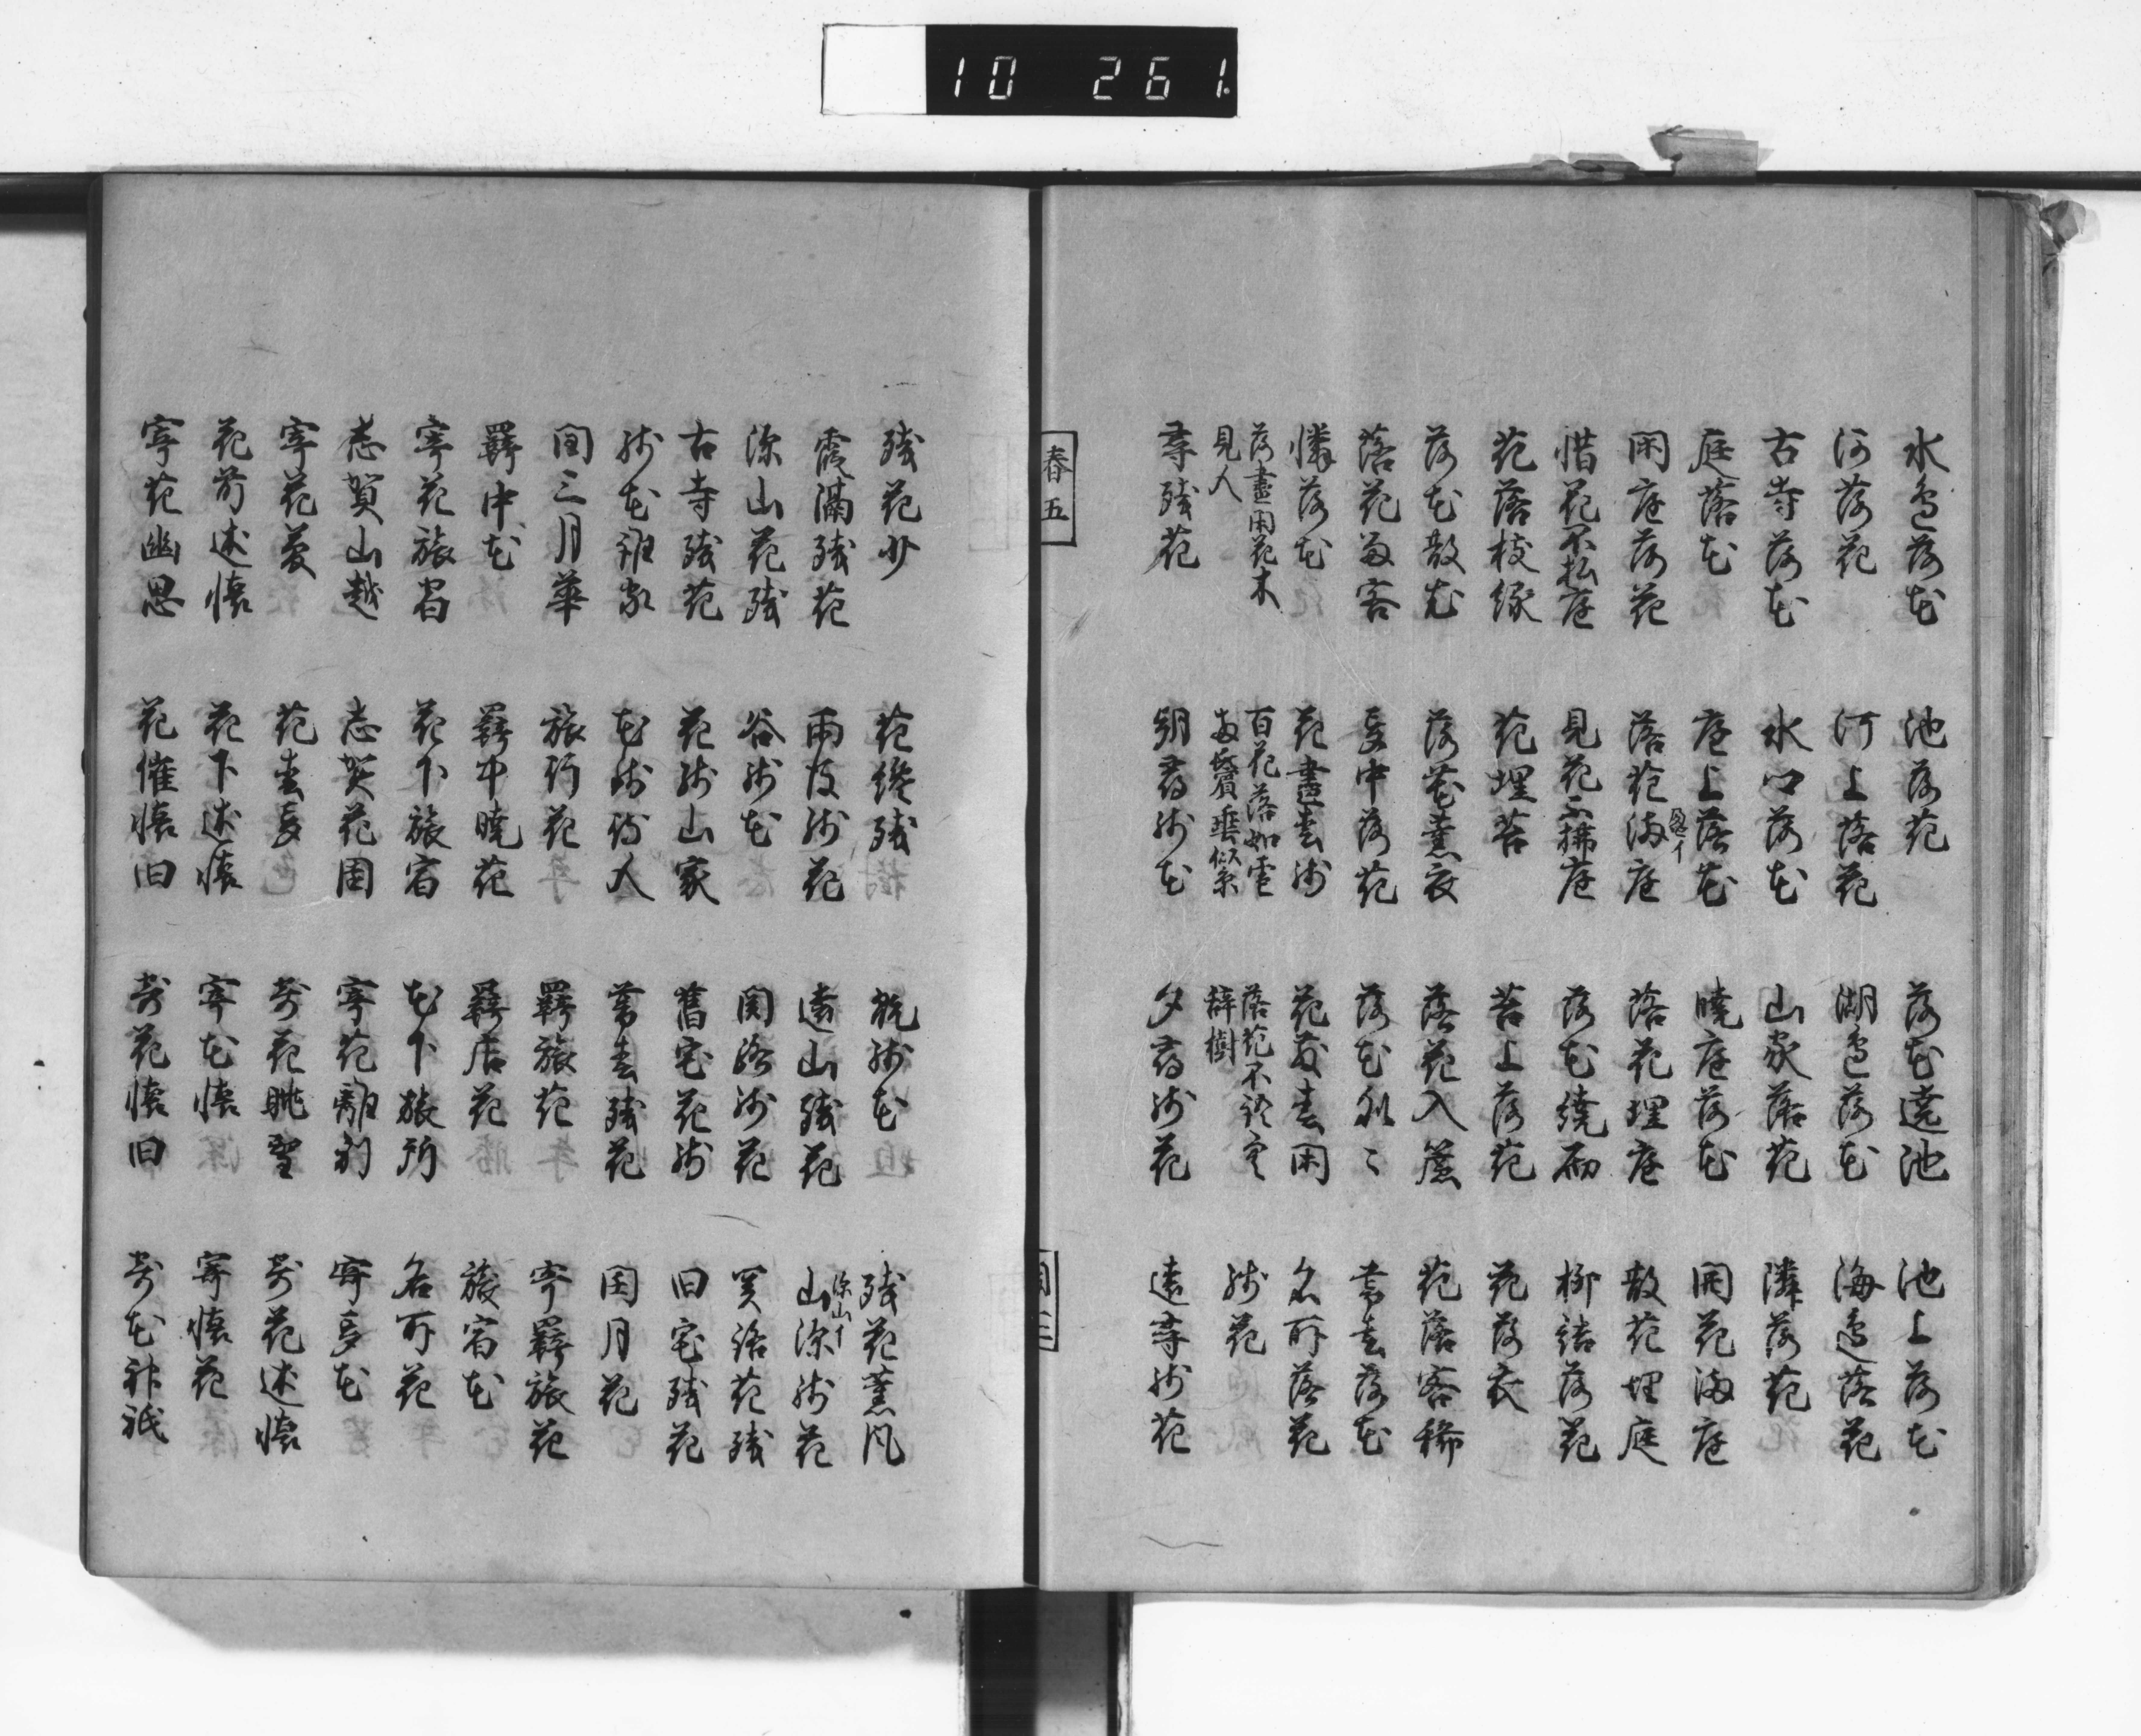 10 261
水邊落花 池落花 落花遶池 池上落花
河落花 河上落花 湖邊落花 海邊落花
古寺落花 水口落花 山家落花 隣落花
庭落花 庭上落花 曉庭落花 閑花滿庭
閑庭落花 落花滿庭 落花埋庭 散花埋庭
惜花不払庭 見花不掃庭 落花繞砌 柳結落花
花落枝緑 花埋苔 苔上落花 花落衣
落花散衣 落花薫衣 落花入簾 花落客稀
落花留客 夏中落花 落花処々 暮春落花
憐落花 花盡春 花落春閑 名所落花
落盡閑花木見人 百花落如雪両鬢垂似糸 落花不語空辞樹 残花
尋残花 朝尋残花 夕尋残花 遠尋残花
春五
残花少 花纔残 翫残花 残花薫風
霞滿残花 雨後残花 遠山残花 山深残花
深山花残 谷残花 関路残花 関路花残
古寺残花 花残山家 舊宅花残 旧宅残花
残花誰家 花残待人 暮春残花 閏月花
閏三月華 旅行花 羇旅花 寄羇旅花
羇中花 羇中曉花 羇店花 旅宿花
寄花旅宿 花下旅宿 花下旅所 名所花
志賀山越 志賀花園 寄花離別 寄夢花
寄花夢 花春夢 寄花眺望 寄花述懐
花前述懐 花下述懐 寄花懐 寄懐花
寄花幽思 花催懐旧 寄花懐旧 寄花神祇